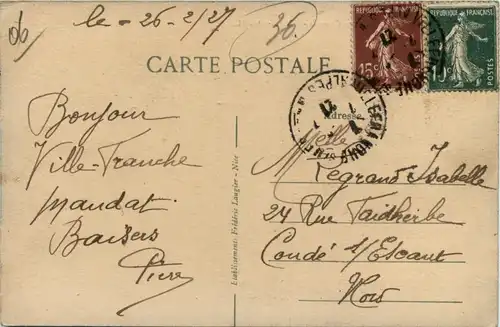 06
le - 26-2/27
36.
CARTE POSTALE
REPUBLIQUE FRANÇAISE
15c
REPUBLIQUE FRANÇAISE
10c
POSTES
Adresse
Bonjour
Ville-Franche
mandat.
Baisers
Etablissements Frédéric Laugier - Nice
Melle
Legrand Isabelle
24 Rue Faidherbe
Condé s/Escaut
Nord